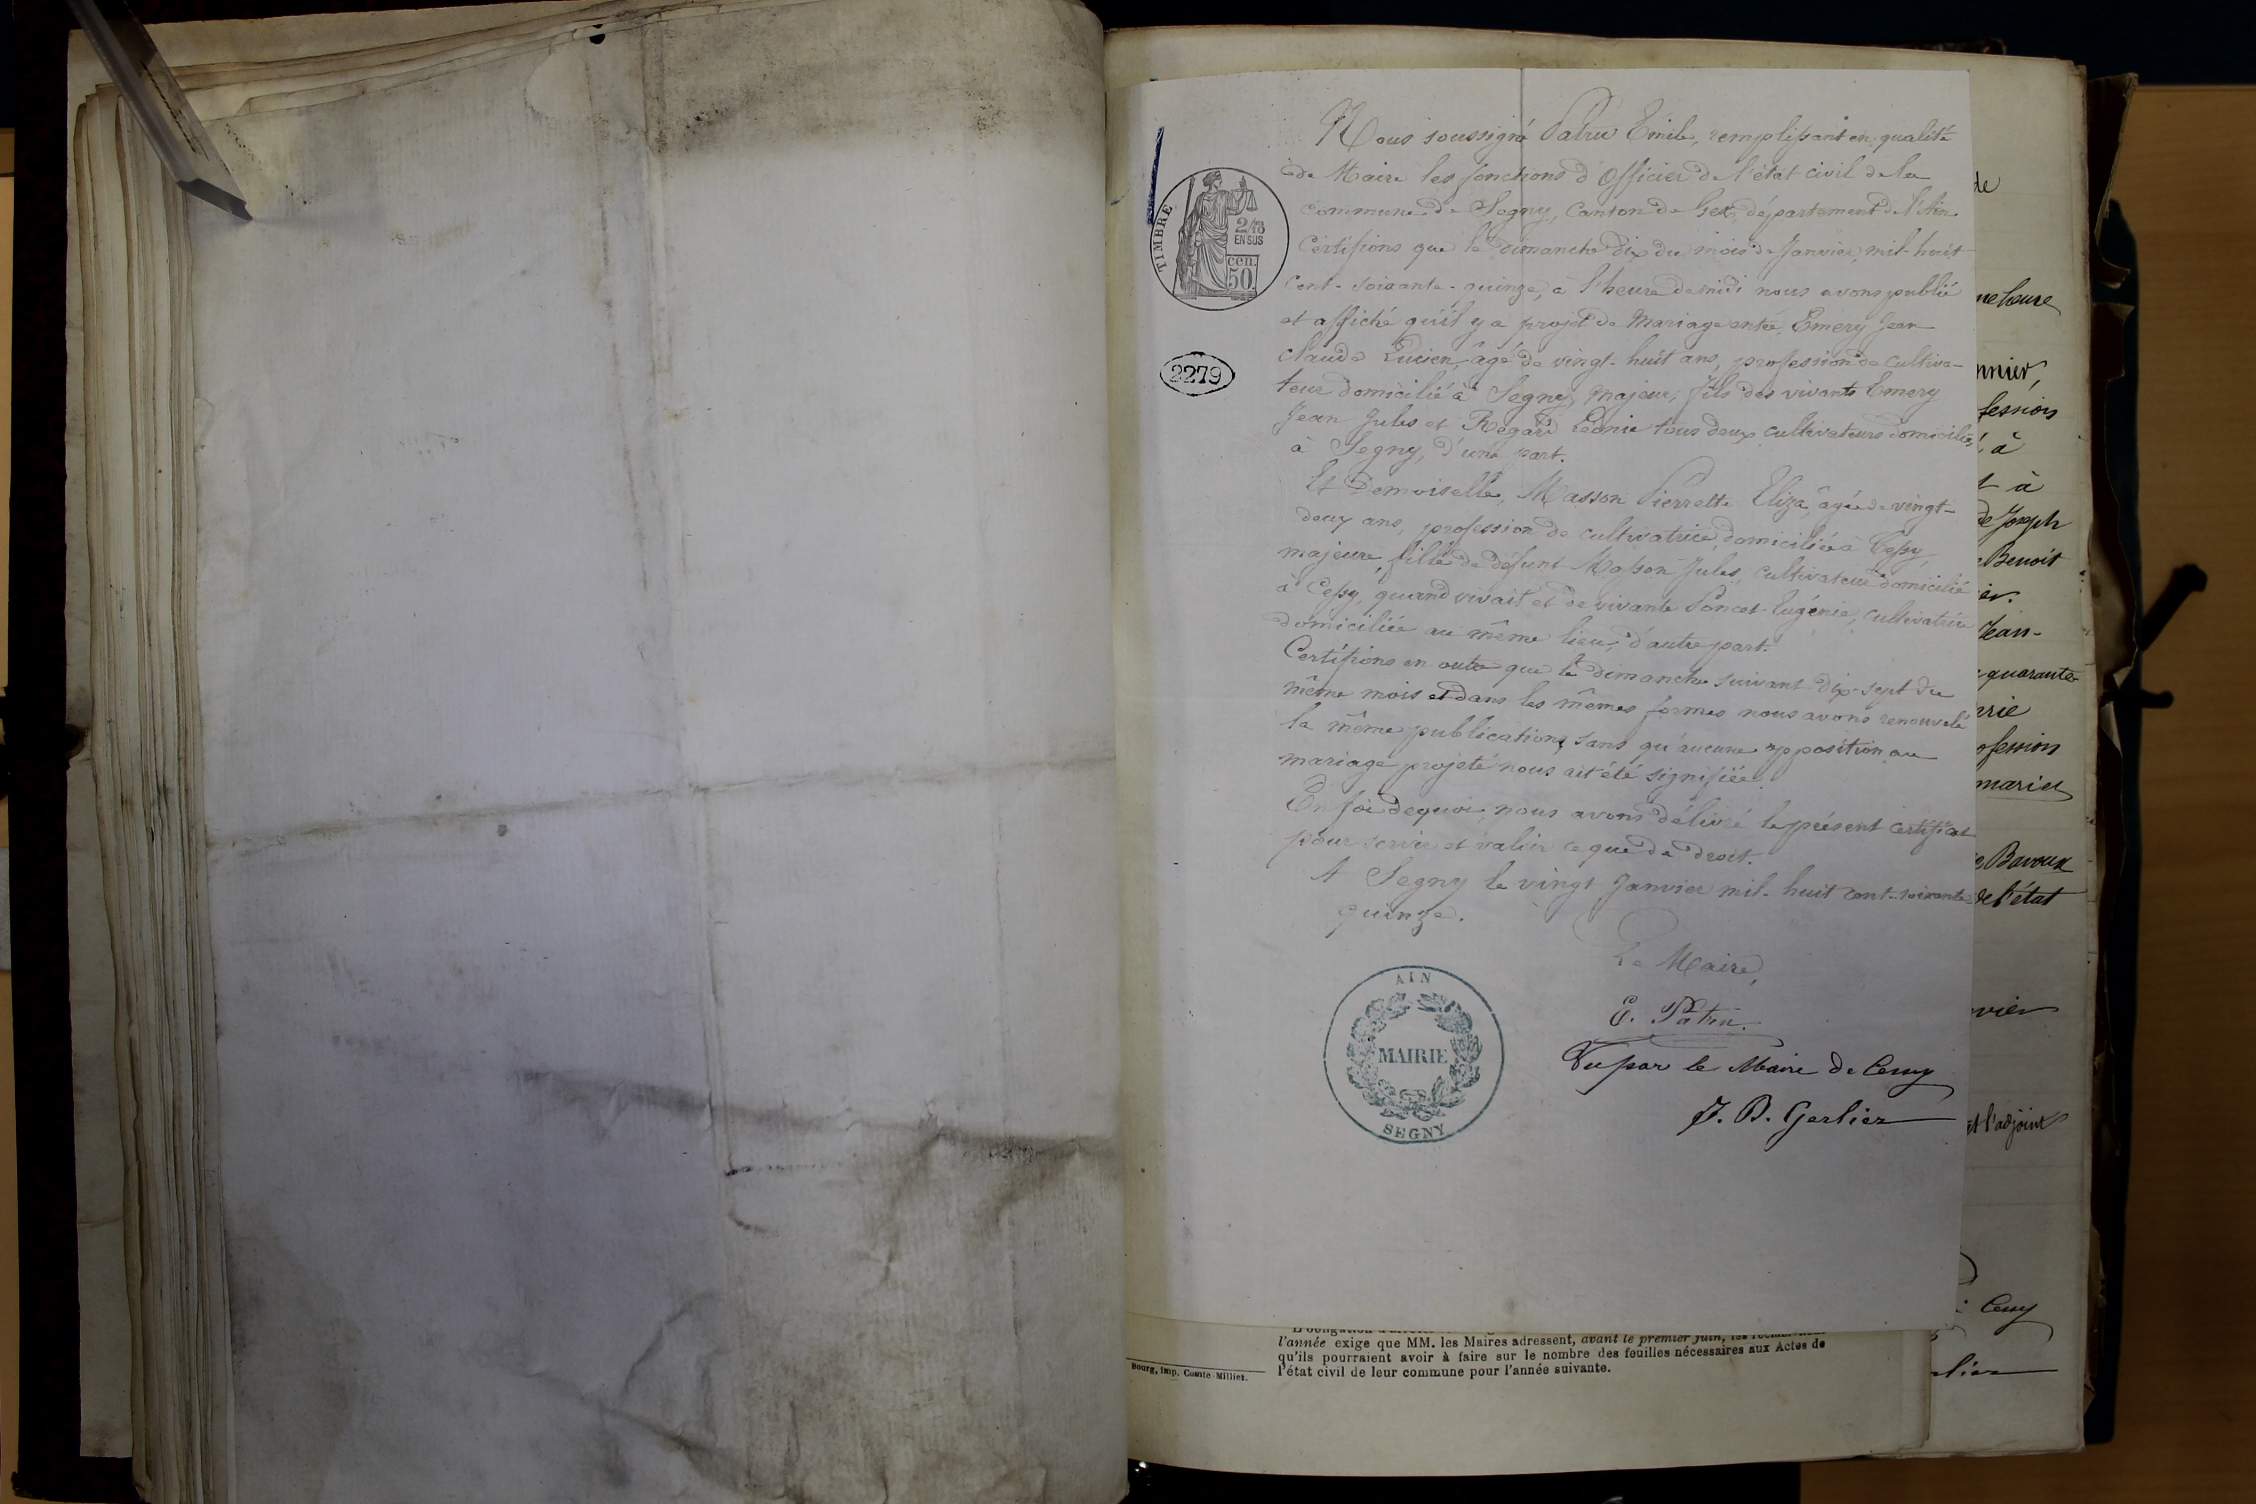 Nous soussigné Patru Emile, remplissant en qualité
de Maire les fonctions d'Officier de l'état civil de la
commune de Segny, Canton de Gex, département de l'Ain
Certifions que le dimanche dix du mois de Janvier, mil-huit-
Cent-soixante-quinze, à l'heure de midi nous avons publié
et affiché qu'il y a projet de Mariage entre, Emery Jean
Claude Lucien, âgé de vingt-huit ans, profession de cultiva-
teur domicilié à Segny, majeur, fils des vivants Emery
Jean Jules et Regard Léonie tous deux cultivateurs domiciliés
à Segny, d'une part.
Et Demoiselle, Masson Pierrette Eliza, âgée de vingt-
deux ans, profession de cultivatrice, domiciliée à Cessy,
majeure, fille de défunt Masson Jules, cultivateur domicilié
à Cessy, quand vivait et de vivante Poncet Eugénie, cultivatrice
domiciliée au même lieu, d'autre part.
Certifions en outre que le dimanche suivant dix-sept du
même mois et dans les mêmes formes nous avons renouvelé
la même publication, sans qu'aucune opposition au
mariage projeté nous ait été signifiée.
En foi de quoi, nous avons délivré le présent certificat
pour servir et valoir ce que de droit.
A Segny le vingt Janvier mil-huit cent-soixante-
quinze.
Le Maire,
E. Patru
Vu par le Maire de Cessy
J. B. Gerlier
TIMBRE
2/10
EN SUS
cen.
50
2279
AIN
MAIRIE
SEGNY
de
heure
fession
à
à
de Joseph
Benoit
Jean-
quarante
ofession
Bavoux
de l'état
et l'adjoint
Cessy
l'année exige que MM. les Maires adressent, avant le premier juin,
qu'ils pourraient avoir à faire sur le nombre des feuilles nécessaires aux Actes de
l'état civil de leur commune pour l'année suivante.
Bourg, imp. Comte-Milliet.